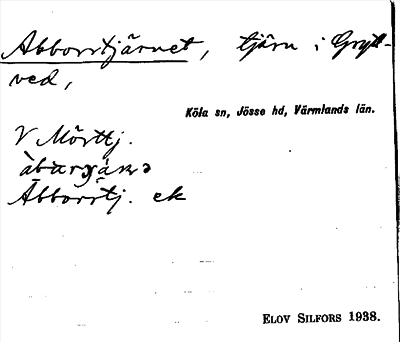 Abborrtjärnet, tjärn i Gryt-
ved,
Köla sn, Jösse hd, Värmlands län.
V Mörttj.
Abborrtj. ek
ELOV SILFORS 1938.